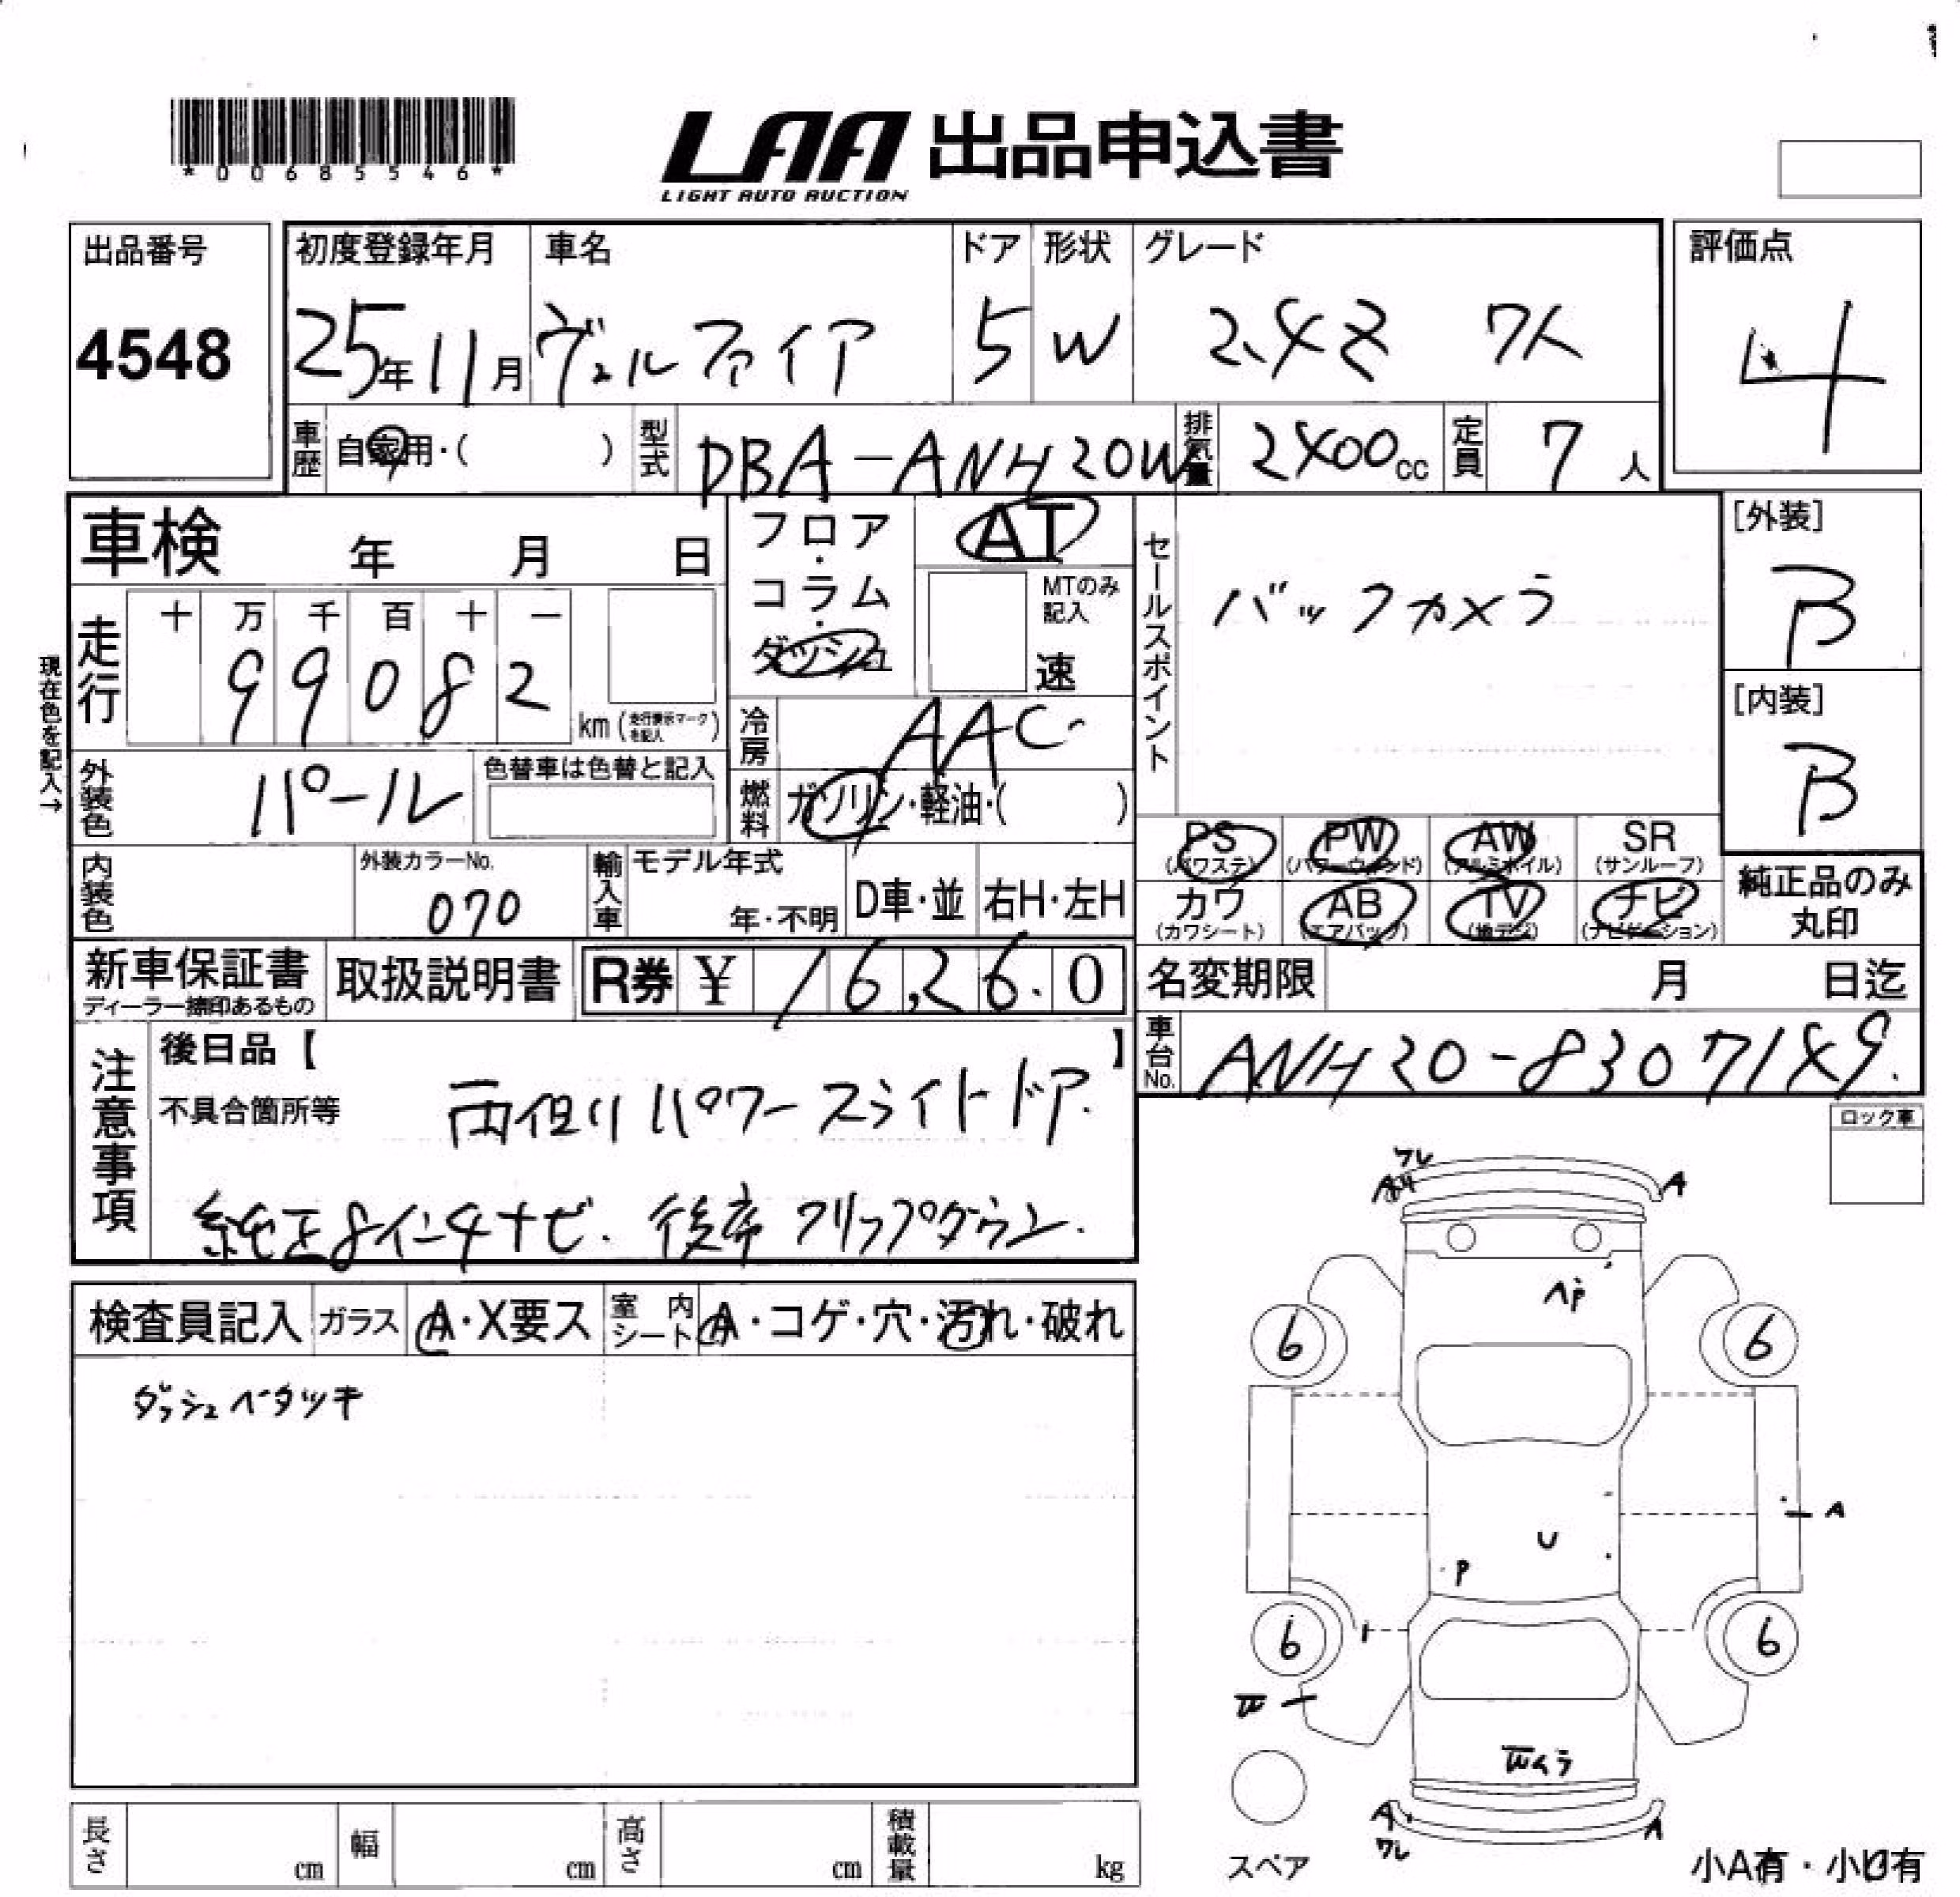 *00685546*
LAA 出品申込書
LIGHT AUTO AUCTION
出品番号
4548
初度登録年月 車名 ドア 形状 グレード
25年11月 ヴェルファイア 5 W 2.4Z 7人
評価点
4
車歴 自家用・( ) 型式 DBA-ANH20W 排気量 2400cc 定員 7人
車検 年 月 日
フロア・コラム・ダッシュ
AT
MTのみ記入
速
セールスポイント
バックカメラ
[外装]
B
[内装]
B
現在色を記入→
走行 十 万 千 百 十 一
99082
km(走行表示マークを記入)
冷房 AAC
外装色 パール 色替車は色替と記入
燃料 ガソリン・軽油・( )
PS PW AW SR
(パワステ) (パワーウィンド) (アルミホイル) (サンルーフ)
カワ AB TV ナビ
(カワシート) (エアバック) (地デジ) (ナビゲーション)
純正品のみ
丸印
内装色 外装カラーNo. 070
輸入車 モデル年式 年・不明 D車・並 右H・左H
新車保証書 取扱説明書 R券 ¥ 16,26.0
ディーラー捺印あるもの
名変期限 月 日迄
車台No. ANH20-8307189.
注意事項
後日品【 】
不具合箇所等 両側パワースライトドア.
純正8インチナビ. 後席フリップダウン.
ロック車
検査員記入 ガラス A・X要ス 室内シート A・コゲ・穴・汚れ・破れ
ダッシュベタツキ
ワレ
A
A
6
6
A
U
P
6
6
A
ワレ
A
スペア
長さ cm 幅 cm 高さ cm 積載量 kg
小A有・小U有